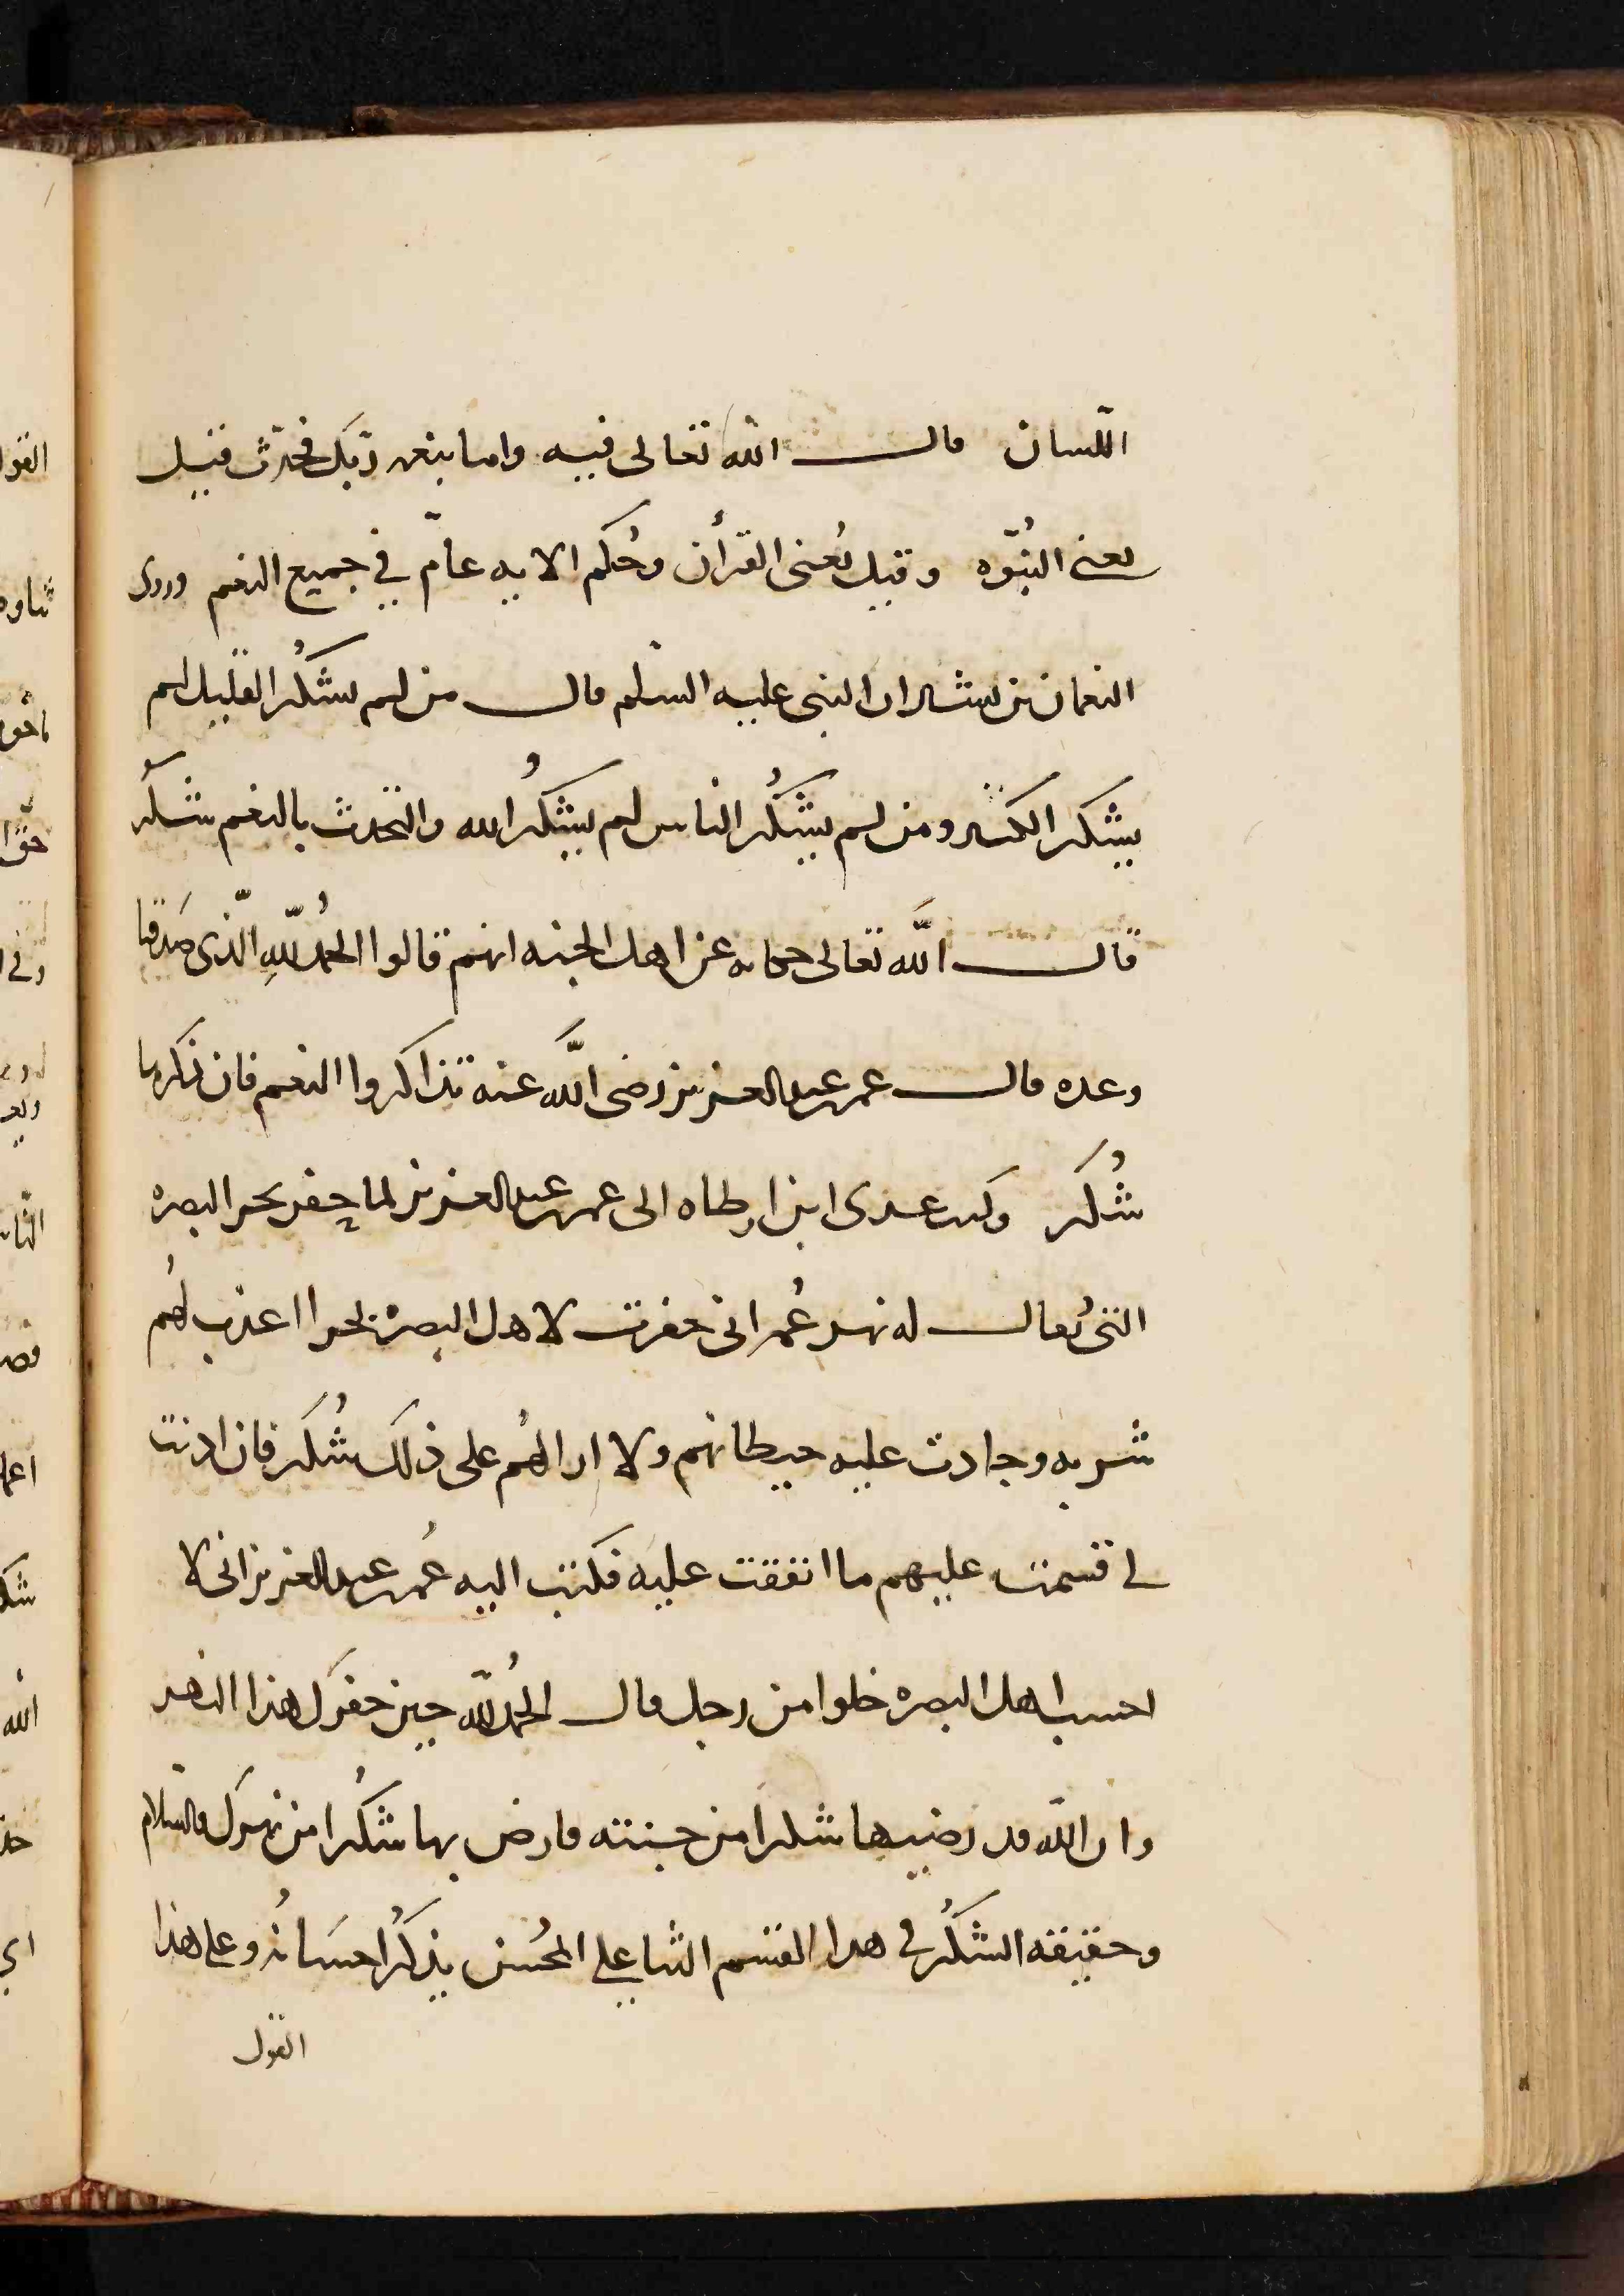 اللسان قال الله تعالى فيه واما بنعمه ربك فحدث فقيل
يعني النبوّه وقيل يُعنى القرأن وحُكم الايه عامّ في جميع النعم وروى
النعمان بن بشير ان النبي عليه السلم قال من لم يشكُر القليل لم
يشكر الكثير ومن لم يشكُر الناس لم يشكُر الله والتحدث بالنعم شكُر
قال الله تعالى حكايه عن اهل الجنه انهم قالوا الحمدُ للّهِ الّذي صَدقنا
وعده قال عمر بن عبد العزيز رضى اللَّه عنه تذاكروا النعم فان ذكرها
شُكر وكتب عدى ابن ارطاه الى عمر بن عبد العزيز لما حفر بحر البصره
التي يُقال له نهر عُمر انى حفرت لاهل البصرة بحرا اعذب لهُم
شربه وجادت عليه حيطانهم ولا ارا لهُم على ذلك شُكر فان اذنت
لي قسمت عليهم ما انفقت عليه فكتب اليه عُمر بن عبد العزيز انى لا
احسب اهل البصره خلوا من رجل قال الحمدُ للّه حين حفرك هذا النهر
وان اللّه قد رضيها شكرا من جنته فارض بها شكُرا من نهرك والسلام
وحقيقه الشكُر في هذا القسم الثنا علي المحُسن بذكرُ احسَانهُ وعلى هذا
القول